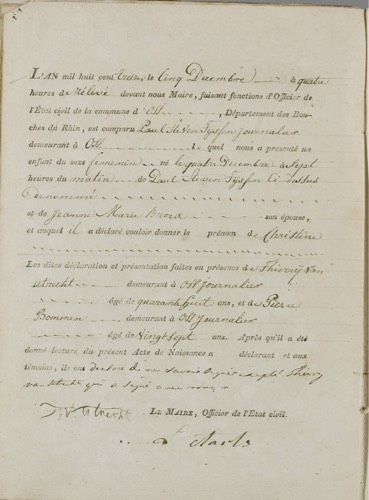 L'AN mil huit cent treize, le Cinq Decembre à quatre
heures de relevé devant nous Maire, faisant fonctions d'Officier de
l'État civil de la commune d'Oss, Département des Bou-
ches du Rhin, est comparu Paul Steven Tyssen Journalier
demeurant à Oss lequel nous a présenté un
enfant du sexe femenin né le quatre Decembre à Sept
heures du matin de Paul Steven Tyssen Ci dessus
Denommé
et de Jeanne Marie son épouse,
et auquel il a déclaré vouloir donner le prénom de Christine
Les dites déclaration et présentation faites en présence de Thierry van
utrecht demeurant à Oss Journalier
âgé de quarante huit ans, et de Pierre
Bommen demeurant à Oss Journalier
âgé de Vingt Sept ans. Après qu'il a été
donné lecture du présent Acte de Naissance a déclarant et aux
témoins, ils ont declaré de ne savoir signer excepté Thierry
van utrecht qui a signé avec nous
utrecht
LE MAIRE, Officier de l'État civil.